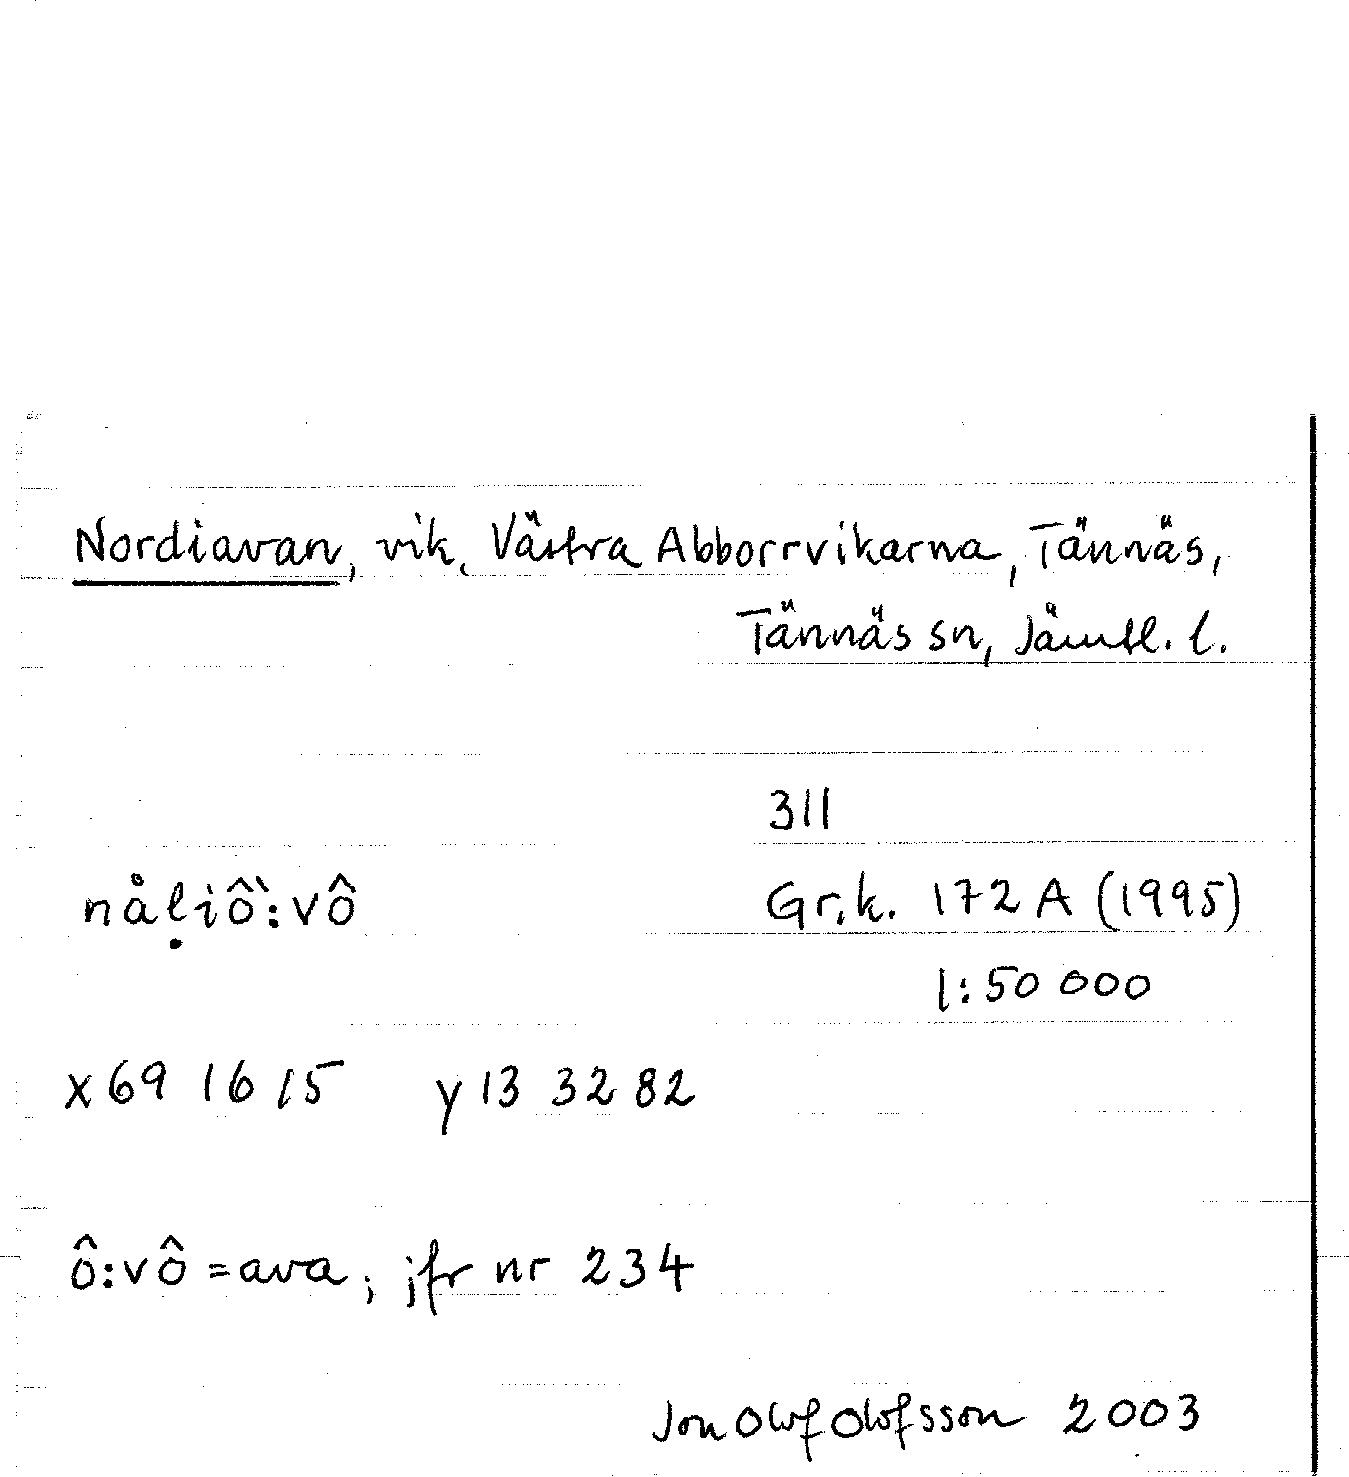 Nordiavan, vik, Västra Abborrvikarna, Tännäs,
Tännäs sn, Jämtl. l.
311
nåḷiồ:vô Gr.k. 172 A (1995)
1:50 000
x 69 16 15 y 13 32 82
ô:vô = ava; jfr nr 234
Jon Olof Olofsson 2003